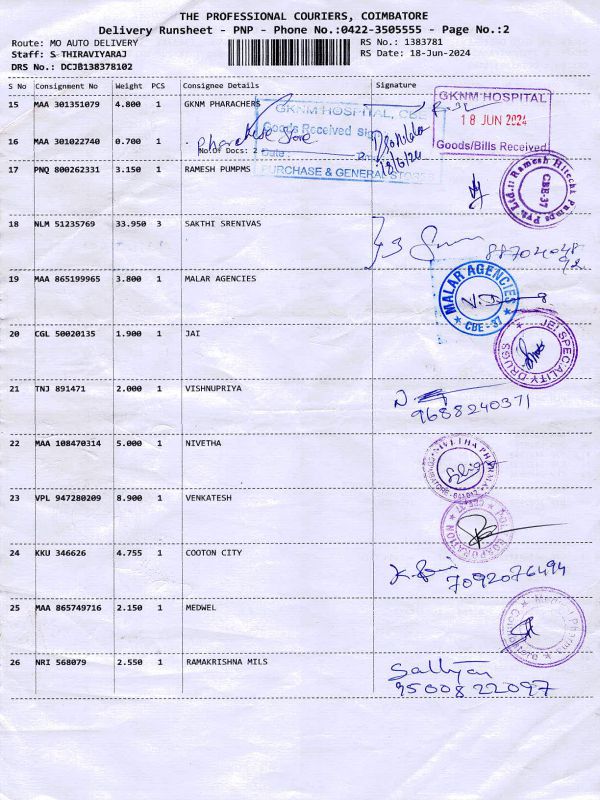 THE PROFESSIONAL COURIERS, COIMBATORE
Delivery Runsheet - PNP - Phone No.:0422-3505555 - Page No.:2
Route: MO AUTO DELIVERY
RS No.: 1383781
Staff: S THIRAVIYARAJ
RS Date: 18-Jun-2024
DRS No.: DCJB138378102
S No Consignment No Weight PCS Consignee Details Signature
15 MAA 301351079 4.800 1 GKNM PHARACHERS
GKNM HOSPITAL, CBE
Goods Received
GKNM HOSPITAL
18 JUN 2024
Goods/Bills Received
16 MAA 301022740 0.700 1
No.Of Docs: 2
Date :
18/6/24
PURCHASE & GENERAL STORES
17 PNQ 800262331 3.150 1 RAMESH PUMPMS
Ramesh Hitech Pumps Pvt. Ltd.
CBE-37
18 NLM 51235769 33.950 3 SAKTHI SRENIVAS
19 MAA 865199965 3.800 1 MALAR AGENCIES
MALAR AGENCIES
CBE-37
20 CGL 50020135 1.900 1 JAI
JEI SPECIALITY DRUGS
21 TNJ 891471 2.000 1 VISHNUPRIYA
9688240371
22 MAA 108470314 5.000 1 NIVETHA
NIVETHA PHARMA
23 VPL 947280209 8.900 1 VENKATESH
CORPORATION
24 KKU 346626 4.755 1 COOTON CITY
7092076494
25 MAA 865749716 2.150 1 MEDWEL
26 NRI 568079 2.550 1 RAMAKRISHNA MILS
9500822097